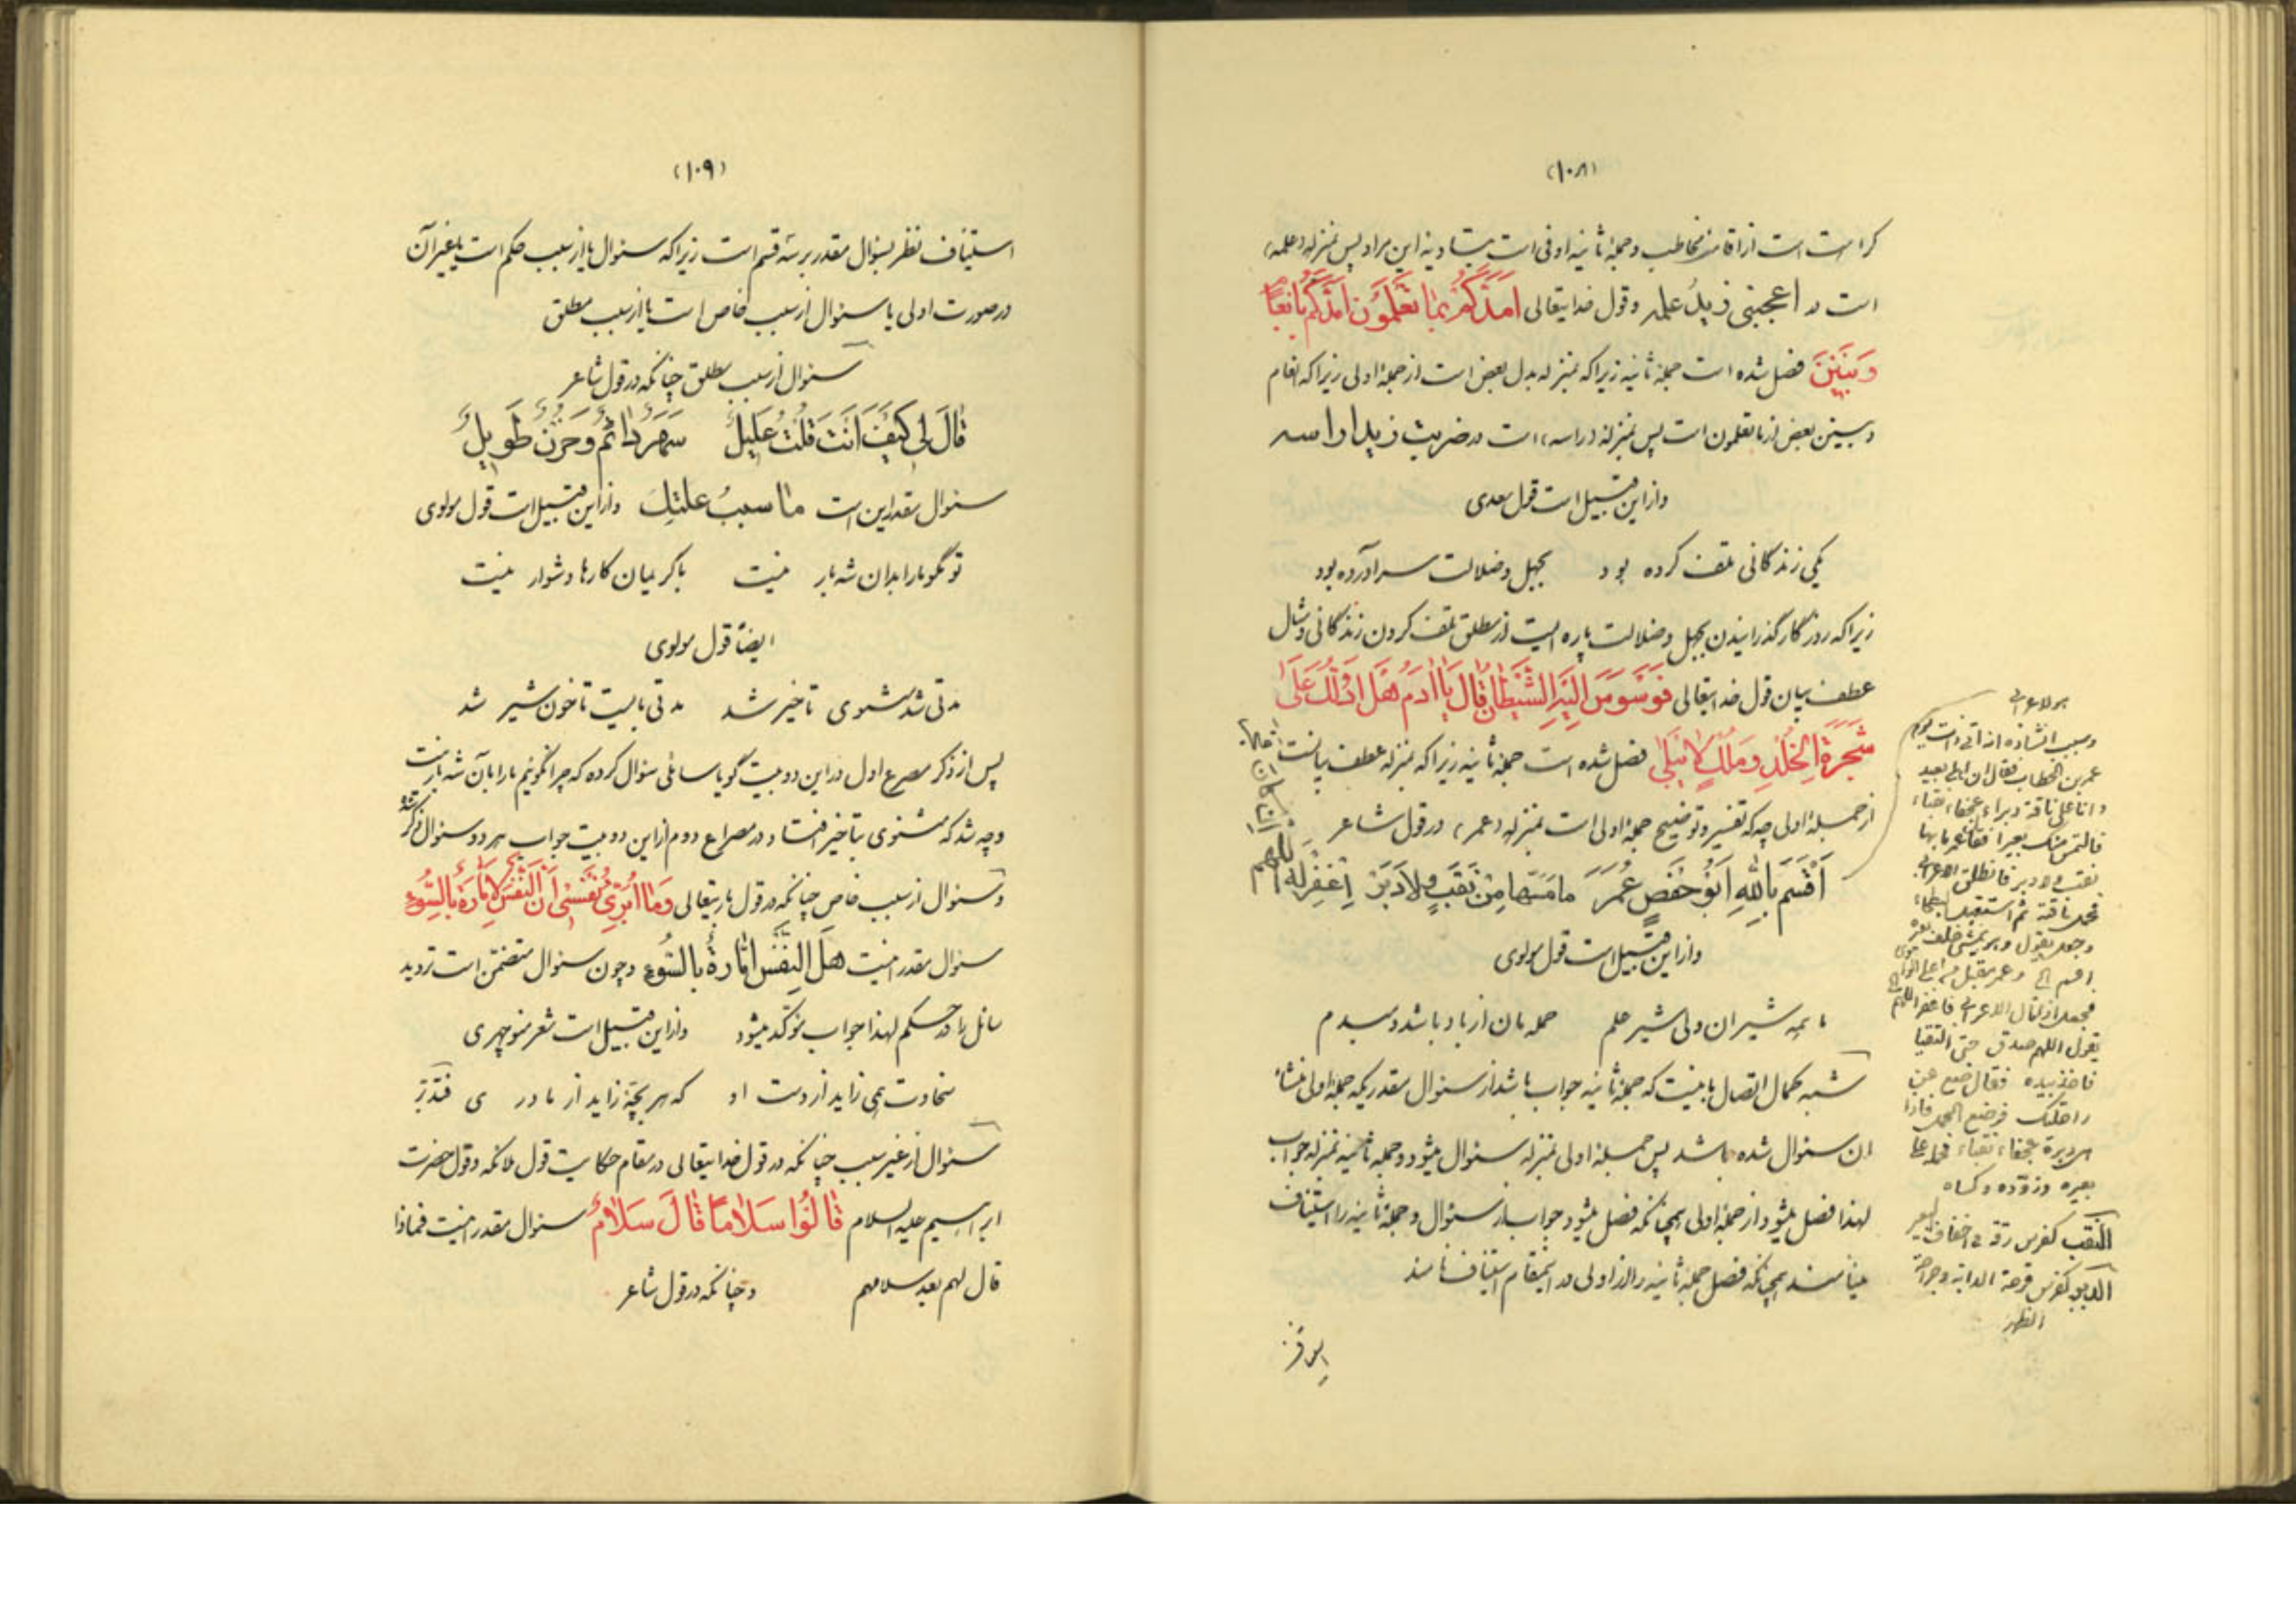 (۱۰۸)
کراهت است از اقامت مخاطب و جملهٔ ثانیه اوفی است بتأدیه این مراد پس بمنزله (علمه)
است در اعجبنی زیدٌ علمه و قول خدایتعالی اَمَدَّکُمْ بِمٰا تَعْلَمُونَ اَمَدَّکُمْ بِاَنْعٰامٍ
وَ بَنینَ فصل شده است جملهٔ ثانیه زیراکه بمنزله بدل بعض است از جملهٔ اولی زیراکه انعام
و بنین بعض از ما تعلمون است پس بمنزله (راسه) است در ضربت زیدا راسه
و از این قبیل است قول سعدی
یکی زندگانی تلف کرده بود بجهل و ضلالت سر آورده بود
زیراکه روزگار گذرانیدن بجهل و ضلالت پاره ایست از مطلق تلف کردن زندگانی و مثال
عطف بیان قول خدایتعالی فَوَسْوَسَ اِلَیْهِ الشَّیْطٰانُ قٰالَ یٰا اٰدَمُ هَلْ اَدُلُّکَ عَلیٰ
شَجَرَةِ الْخُلْدِ وَ مُلْکٍ لاٰ یَبْلیٰ فصل شده است جملهٔ ثانیه زیراکه بمنزله عطف بیانست
از جملهٔ اولی چه که تفسیر و توضیح جملهٔ اولی است بمنزله (عمر) در قول شاعر
اَقْسَمَ بِاللّٰهِ اَبُوْ حَفْصٍ عُمَرَ مامَسَّها مِنْ نَقَبٍ وَلادَبَرَ اِغْفِرْ لَهُ اللّهم
و از این قبیل است قول مولوی
ما همه شیران ولی شیر علم حمله مان از باد باشد دمبدم
شبه کمال اتصال باینست که جملهٔ ثانیه جواب باشد از سئوال مقدریکه جملهٔ اولی منشاء
ان سئوال شده باشد پس جملهٔ اولی بمنزله سئوال میشود و جملهٔ ثانیه بمنزله جواب
لهذا فصل میشود از جملهٔ اولی همچنانکه فصل میشود جواب از سئوال و جملهٔ ثانیه را استیناف
مینامند همچنانکه فصل جملهٔ ثانیه را از اولی در اینمقام استیناف نامند
و سبب انشاده انه اتی ذات یوم
عمر بن الخطاب فقال ان اهلی بعید
و انا علی ناقة دبراء عجفاء نقباء
فالتمس منک بعیراً فقال عمر ما بها
نقب و لا دبر فانطلق الاعرابی
و جعل یقول و هو یمشی خلف بعیره
اقسم الخ و عمر مقبل من اعلی الوادی
فجعل اذا قال الاعرابی فاغفر اللهم
یقول اللهم صدق حتی التقیا
فاخذ بیده فقال ضع عن
راحلتک فوضع الحمل فاذا
هی دبرة عجفاء نقباء فحمله علی
بعیره و زوّده و کساه
النّقب کفرس رقة فی اخفاف البعیر
الدبر کفرس قرحة الدابة و جراحة
الظهر
(۱۰۹)
استیناف نظر بسئوال مقدر بر سه قسم است زیراکه سئوال یا از سبب حکم است یا غیر آن
در صورت اولی یا سئوال از سبب خاص است یا از سبب مطلق
سئوال از سبب مطلق چنانکه در قول شاعر
قٰالَ لی کَیْفَ اَنْتَ قُلْتُ عَلیلٌ سَهَرٌ دائمٌ وَ حُزْنٌ طَویلٌ
سئوال مقدر این است ما سببُ علتِکَ و از این قبیل است قول مولوی
تو مگو ما را بدان شه بار نیست با کریمان کارها دشوار نیست
ایضاً قول مولوی
مدتی شد مثنوی تاخیر شد مدتی بایست تا خون شیر شد
پس از ذکر مصرع اول در این دو بیت گویا سائلی سئوال کرده که چرا نگوئیم ما را بآن شه بار نیست
و چه شد که مثنوی بتاخیر افتاد و در مصراع دوم از این دو بیت جواب هر دو سئوال ذکر شد
و سئوال از سبب خاص چنانکه در قول باریتعالی وَ مٰا اُبَرِّئُ نَفْسی اِنَّ النَّفْسَ لَاَمّٰارَةٌ بِالسُّوءِ
سئوال مقدر اینست هَلِ النَّفْسُ اَمّٰارَةٌ بِالسُّوءِ و چون سئوال متضمن است تردید
سائل را در حکم لهذا جواب مؤکّد میشود و از این قبیل است شعر منوچهری
سخاوت همی زاید از دست او که هر بچّه زاید از مادری
سئوال از غیر سبب چنانکه در قول خدایتعالی در مقام حکایت قول ملائکه و قول حضرت
ابراهیم علیه السلام قٰالُوا سَلاٰمًا قٰالَ سَلاٰمٌ سئوال مقدر اینست فماذا
قال لهم بعد سلامهم و چنانکه در قول شاعر